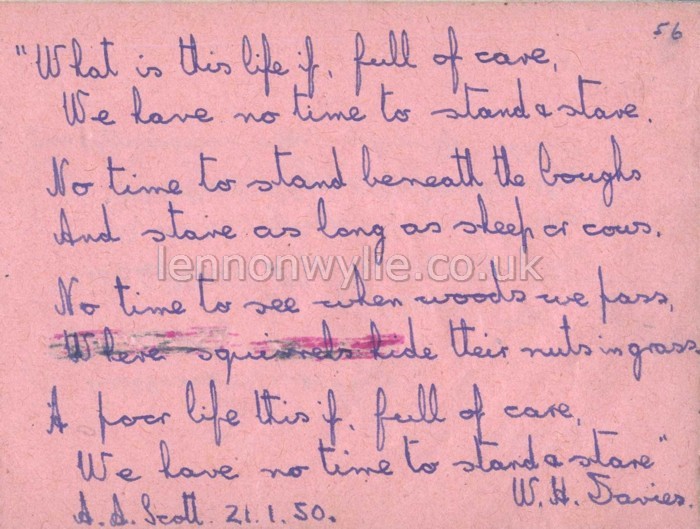 56
"What is this life if, full of care,
We have no time to stand & stare.
No time to stand beneath the boughs
And stare as long as sheep or cows.
lennonwylie.co.uk
No time to see when woods we pass,
Where squirrels hide their nuts in grass
A poor life this if, full of care,
We have no time to stand & stare"
W. H. Davies.
A. A. Scott. 21.1.50.